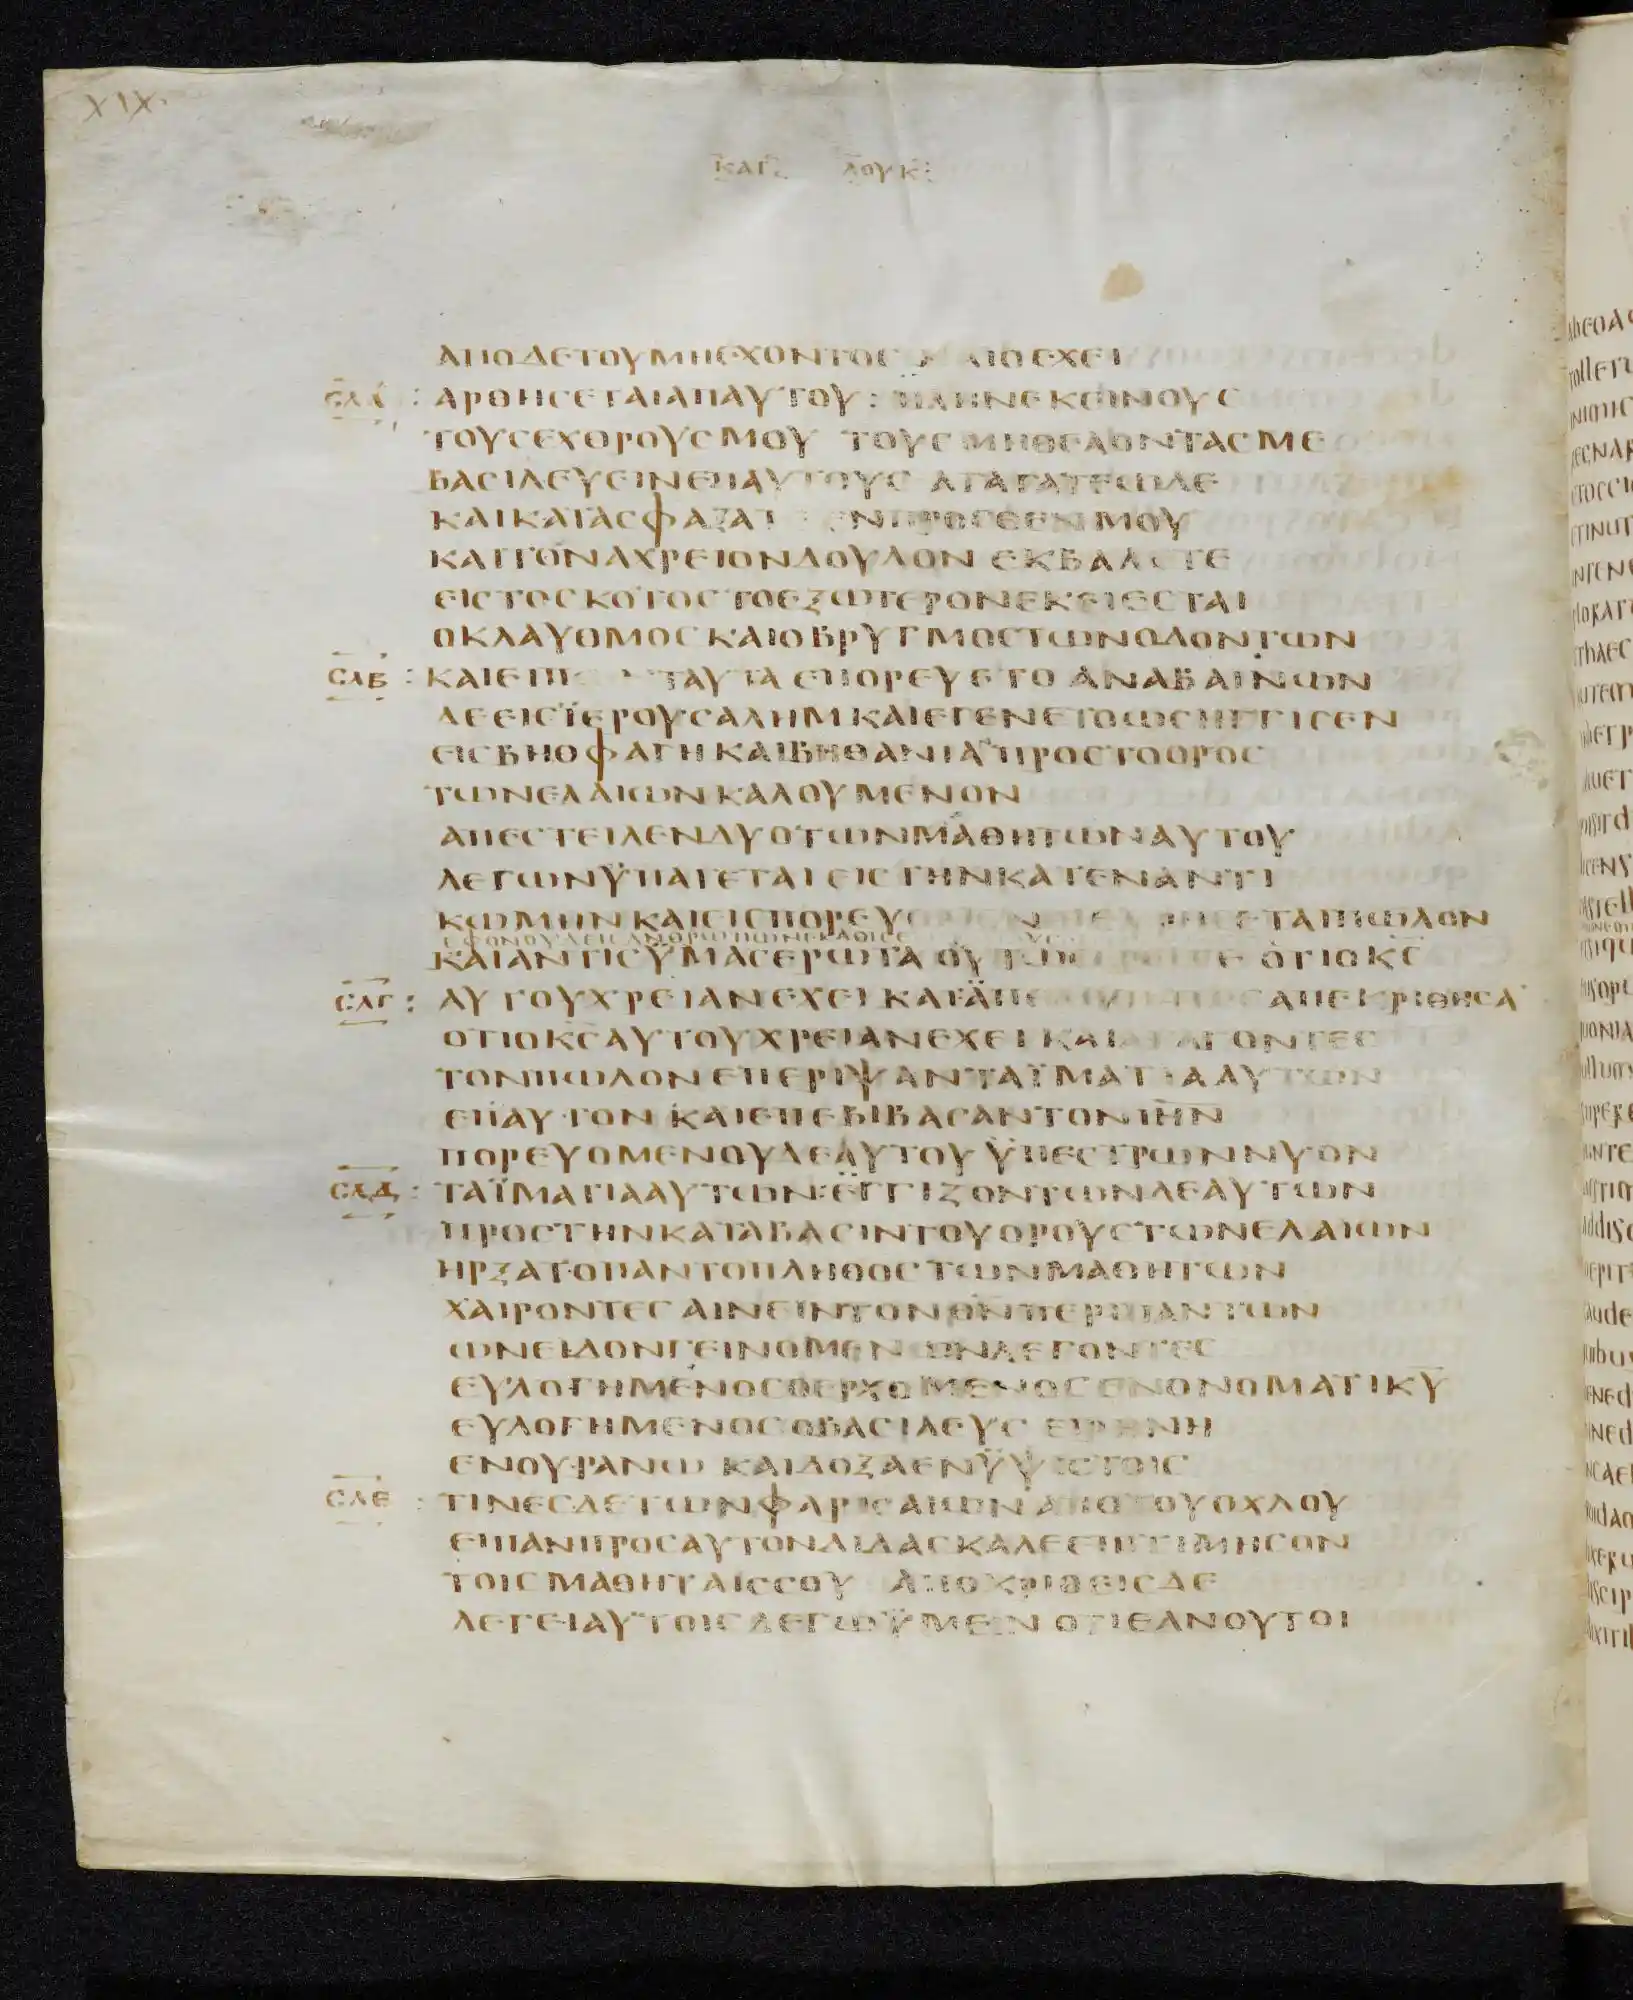 XIX.
ΚΑΤ ΛΟΥΚ
ΑΠΟΔΕΤΟΥΜΗΕΧΟΝΤΟΣ ΚΑΙΟΕΧΕΙ
ΣΛΑ : ΑΡΘΗΣΕΤΑΙΑΠΑΥΤΟΥ : ΠΛΗΝΕΚΕΙΝΟΥΣ
ΤΟΥΣΕΧΘΡΟΥΣΜΟΥ ΤΟΥΣΜΗΘΕΛΟΝΤΑΣΜΕ
ΒΑΣΙΛΕΥΕΙΝΕΠΑΥΤΟΥΣ ΑΓΑΓΑΤΕΩΔΕ
ΚΑΙΚΑΤΑΣΦΑΞΑΤΕ ΕΝΠΡΟΣΘΕΝΜΟΥ
ΚΑΙΤΟΝΑΧΡΕΙΟΝΔΟΥΛΟΝ ΕΚΒΑΛΕΤΕ
ΕΙΣΤΟΣΚΟΤΟΣΤΟΕΞΩΤΕΡΟΝΕΚΕΙΕΣΤΑΙ
ΟΚΛΑΥΘΜΟΣΚΑΙΟΒΡΥΓΜΟΣΤΩΝΟΔΟΝΤΩΝ
ΣΛΒ : ΚΑΙΕΙΠ ΤΑΥΤΑ ΕΠΟΡΕΥΕΤΟ ΑΝΑΒΑΙΝΩΝ
ΔΕΕΙΣΪΕΡΟΥΣΑΛΗΜΚΑΙΕΓΕΝΕΤΟΩΣΗΓΓΙΣΕΝ
ΕΙΣΒΗΘΦΑΓΗΚΑΙΒΗΘΑΝΙΑΠΡΟΣΤΟΟΡΟΣ
ΤΩΝΕΛΑΙΩΝΚΑΛΟΥΜΕΝΟΝ
ΑΠΕΣΤΕΙΛΕΝΔΥΟΤΩΝΜΑΘΗΤΩΝΑΥΤΟΥ
ΛΕΓΩΝΫΠΑΓΕΤΑΙΕΙΣΤΗΝΚΑΤΕΝΑΝΤΙ
ΚΩΜΗΝΚΑΙΕΙΣΠΟΡΕΥΟΜΕΝΟΙΕΥΡΗΣΕΤΑΙΠΩΛΟΝ
ΕΦΟΝΟΥΔΕΙΣΑΝΘΡΩΠΩΝΕΚΑΘΙΣΕ
ΚΑΙΑΝΤΙΣΫΜΑΣΕΡΩΤΑ ΟΥΤΩΣ ΟΤΙΟΚΣ
ΣΛΓ : ΑΥΤΟΥΧΡΕΙΑΝΕΧΕΙ ΚΑΙΑΠΕΛΘΟΝΤΕΣΑΠΕΚΡΙΘΗΣΑ
ΟΤΙΟΚΣΑΥΤΟΥΧΡΕΙΑΝΕΧΕΙΚΑΙΑΓΑΓΟΝΤΕΣ
ΤΟΝΠΩΛΟΝΕΠΕΡΙΨΑΝΤΑΪΜΑΤΙΑΑΥΤΩΝ
ΕΠΑΥΤΟΝ ΚΑΙΕΠΕΒΙΒΑΣΑΝΤΟΝΙΗΝ
ΠΟΡΕΥΟΜΕΝΟΥΔΕΑΥΤΟΥ ΫΠΕΣΤΡΩΝΝΥΟΝ
ΣΛΔ : ΤΑΪΜΑΤΙΑΑΥΤΩΝ:ΕΓΓΙΖΟΝΤΩΝΔΕΑΥΤΩΝ
ΠΡΟΣΤΗΝΚΑΤΑΒΑΣΙΝΤΟΥΟΡΟΥΣΤΩΝΕΛΑΙΩΝ
ΗΡΞΑΤΟΠΑΝΤΟΠΛΗΘΟΣΤΩΝΜΑΘΗΤΩΝ
ΧΑΙΡΟΝΤΕΣΑΙΝΕΙΝΤΟΝΘΝΠΕΡΙΠΑΝΤΩΝ
ΩΝΕΙΔΟΝΓΕΙΝΟΜΕΝΩΝΛΕΓΟΝΤΕΣ
ΕΥΛΟΓΗΜΕΝΟΣΟΕΡΧΟΜΕΝΟΣΕΝΟΝΟΜΑΤΙΚΥ
ΕΥΛΟΓΗΜΕΝΟΣΟΒΑΣΙΛΕΥΣ ΕΙΡΗΝΗ
ΕΝΟΥΡΑΝΩ ΚΑΙΔΟΞΑΕΝΫΨΙΣΤΟΙΣ
ΣΛΕ : ΤΙΝΕΣΔΕΤΩΝΦΑΡΙΣΑΙΩΝΑΠΟΤΟΥΟΧΛΟΥ
ΕΙΠΑΝΠΡΟΣΑΥΤΟΝΔΙΔΑΣΚΑΛΕΕΠΙΤΙΜΗΣΟΝ
ΤΟΙΣΜΑΘΗΤΑΙΣΣΟΥ ΑΠΟΚΡΙΘΕΙΣΔΕ
ΛΕΓΕΙΑΥΤΟΙΣΛΕΓΩΫΜΕΙΝ ΟΤΙΕΑΝΟΥΤΟΙ